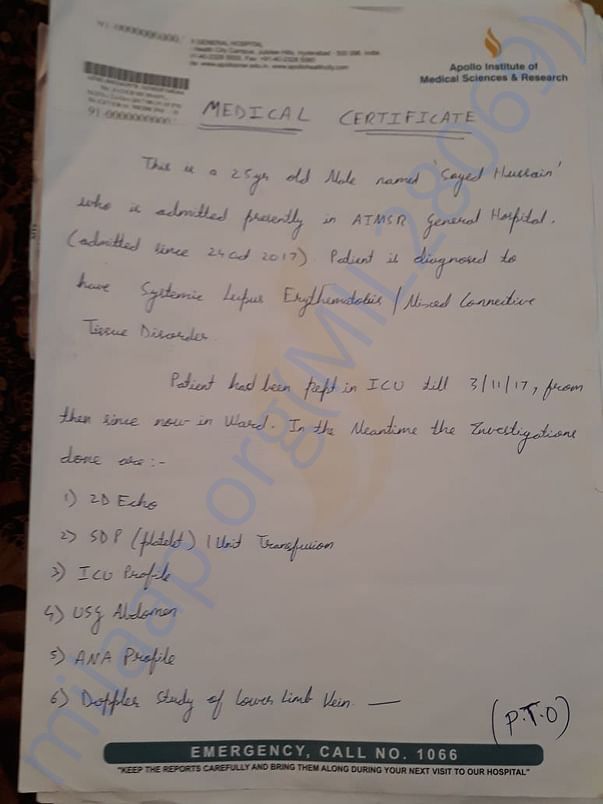 91-0000000000
GENERAL HOSPITAL
Health City Campus, Jubilee Hills, Hyderabad - 500 096. India.
Apollo Institute of
Medical Sciences & Research
91-0000000000
MEDICAL CERTIFICATE
This is a 25yr old Male named 'Sayed Hussain'
who is admitted presently in AIMSR General Hospital.
(admitted since 24 Oct 2017). Patient is diagnosed to
have Systemic Lupus Erythematosis / Mixed Connective
Tissue Disorder.
Patient had been kept in ICU till 3/11/17, from
then since now in Ward. In the Meantime the Investigations
done are:-
1) 2D Echo
2) SDP (platelet) 1 Unit Transfusion
3) ICU Profile
4) USG Abdomen
5) ANA Profile
6) Doppler Study of Lower Limb Vein. —
(P.T.O)
EMERGENCY, CALL NO. 1066
"KEEP THE REPORTS CAREFULLY AND BRING THEM ALONG DURING YOUR NEXT VISIT TO OUR HOSPITAL"
milaap.org(MIL280069)